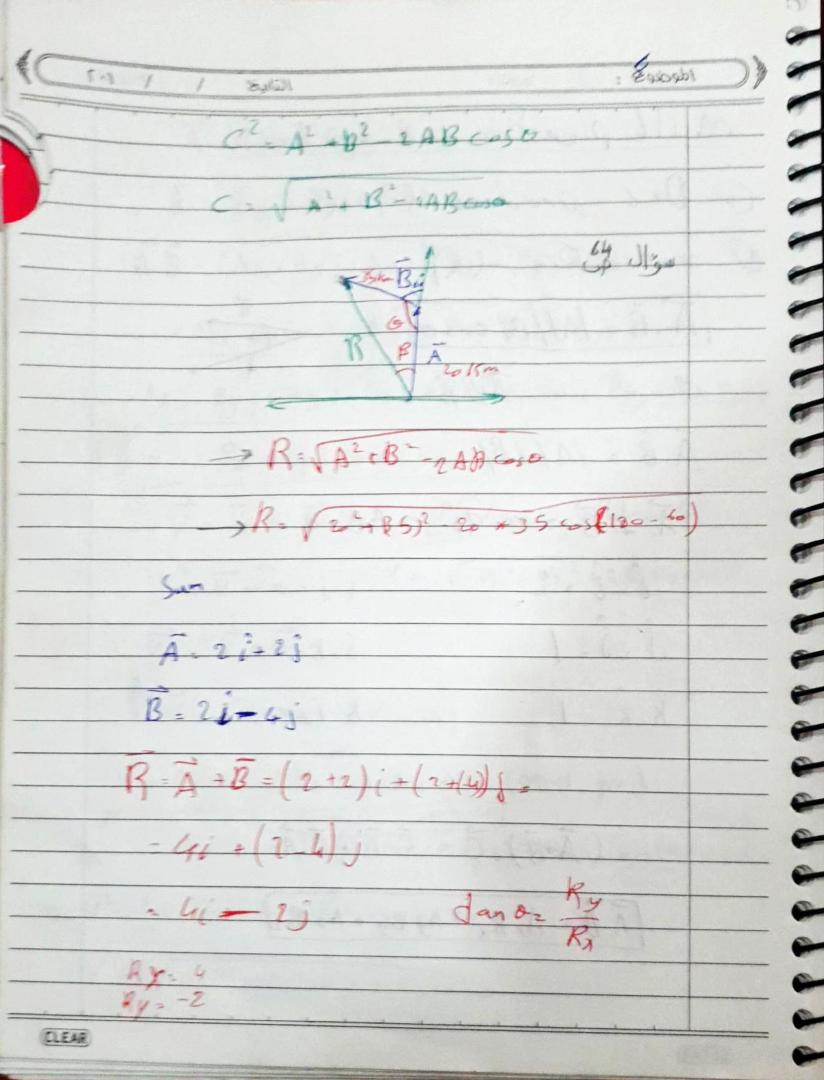 الموضوع :
التاريخ / / ٢٠١
C² = A² + B² - 2AB cos θ
C = √A² + B² - 2AB cos θ
سؤال ص 64
35km B⃗
θ
R β A⃗
20 Km
→ R = √A² + B² - 2AB cos θ
→ R = √20² + (35)² - 20 * 35 cos(180 - 60)
Sum
A⃗ = 2i + 2j
B⃗ = 2i - 4j
R⃗ = A⃗ + B⃗ = (2+2)i + (2+(4))j =
= 4i + (2-4)j
= 4i - 2j tan θ = Ry/Rx
Rx = 4
Ry = -2
CLEAR